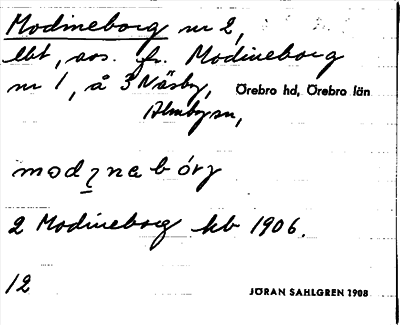 Modineborg nr 2,
lht, avs. fr. Modineborg
nr 1, å 3 Näsby, Örebro hd, Örebro län
Almby sn,
2 Modineborg kb 1906.
12 JÖRAN SAHLGREN 1908